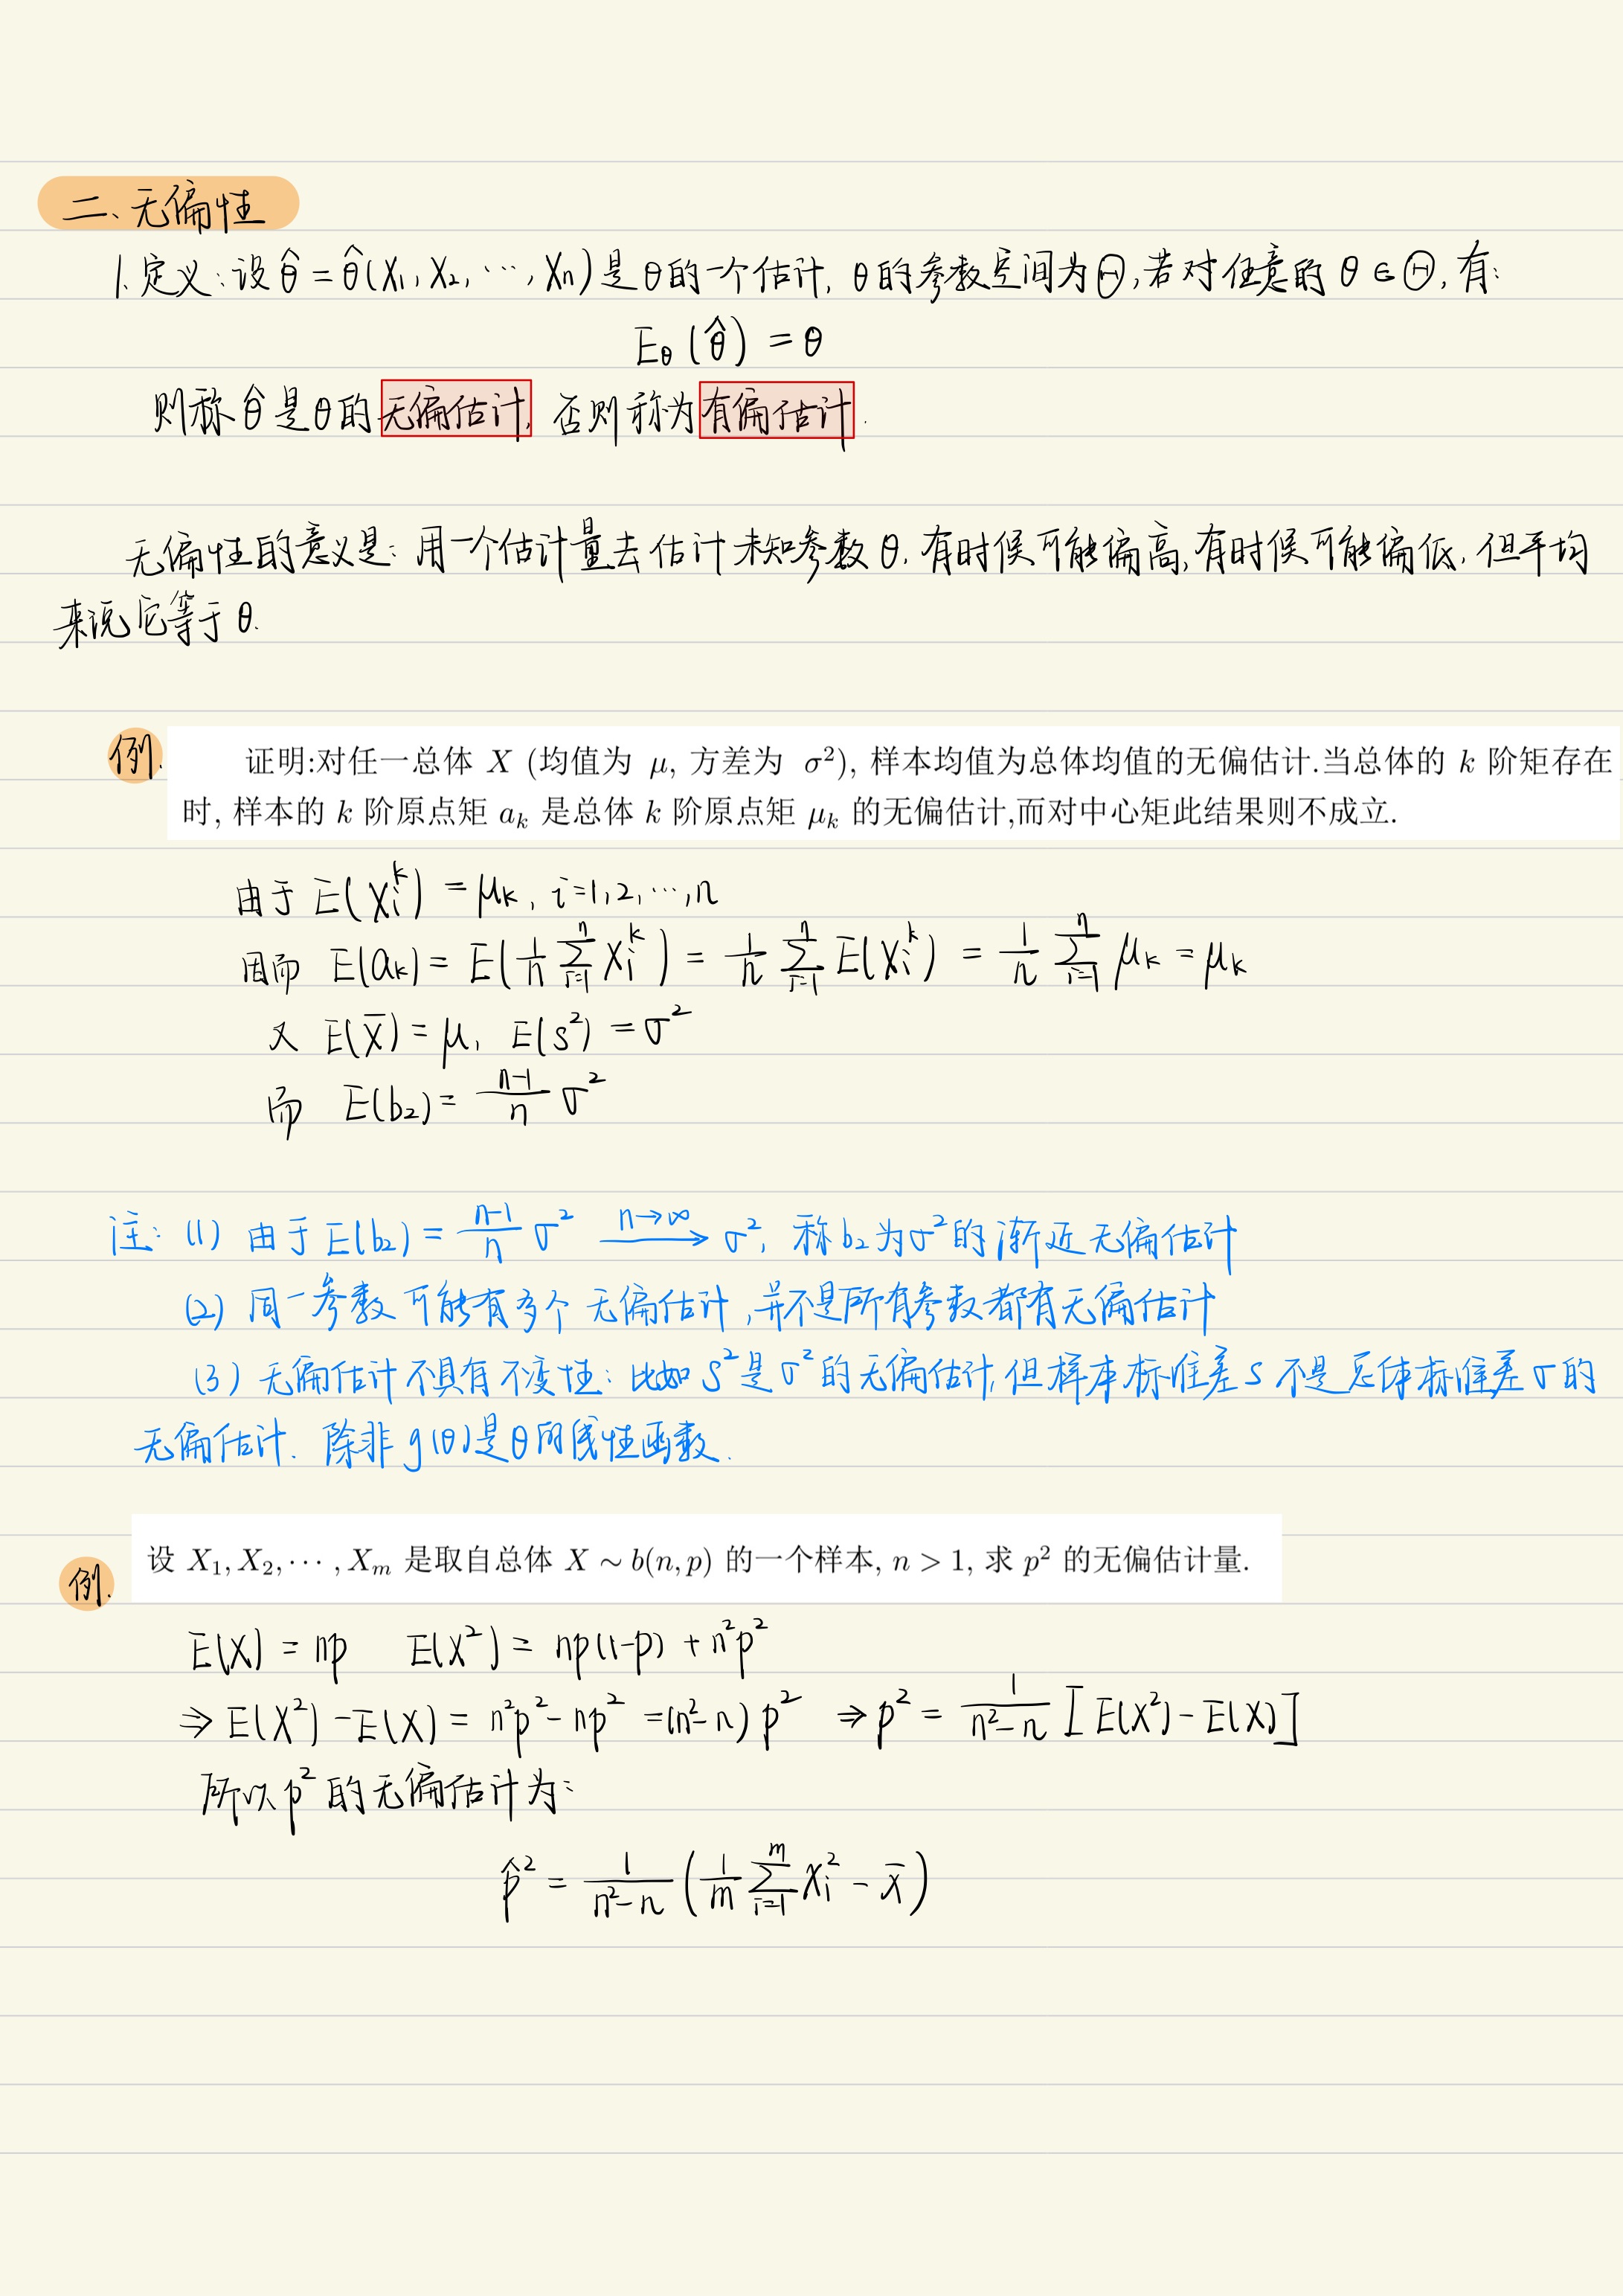 二、无偏性
1. 定义：设 θ̂ = θ̂(X₁, X₂, ⋯, Xn) 是θ的一个估计, θ的参数空间为Θ, 若对任意的 θ∈Θ, 有:
E_θ(θ̂) = θ
则称θ̂是θ的无偏估计, 否则称为有偏估计.
无偏性的意义是：用一个估计量去估计未知参数θ, 有时候可能偏高, 有时候可能偏低, 但平均
来说它等于θ.
例. 证明:对任一总体 X (均值为 μ, 方差为 σ²), 样本均值为总体均值的无偏估计.当总体的 k 阶矩存在
时, 样本的 k 阶原点矩 a_k 是总体 k 阶原点矩 μ_k 的无偏估计,而对中心矩此结果则不成立.
由于 E(X_i^k) = μ_k, i=1,2,⋯,n
因而 E(a_k) = E(1/n ∑_{i=1}^n X_i^k) = 1/n ∑_{i=1}^n E(X_i^k) = 1/n ∑_{i=1}^n μ_k = μ_k
又 E(X̄) = μ, E(s²) = σ²
而 E(b₂) = (n-1)/n σ²
注：(1) 由于 E(b₂) = (n-1)/n σ² —n→∞→ σ², 称b₂为σ²的渐近无偏估计
(2) 同一参数可能有多个无偏估计, 并不是所有参数都有无偏估计
(3) 无偏估计不具有不变性：比如 S²是σ²的无偏估计, 但样本标准差 s 不是总体标准差σ的
无偏估计. 除非g(θ)是θ的线性函数.
例. 设 X₁, X₂, ⋯ , X_m 是取自总体 X ∼ b(n, p) 的一个样本, n > 1, 求 p² 的无偏估计量.
E(X) = np E(X²) = np(1-p) + n²p²
⇒ E(X²) - E(X) = n²p² - np² = (n²-n) p² ⇒ p² = 1/(n²-n) [E(X²) - E(X)]
所以 p² 的无偏估计为：
p̂² = 1/(n²-n) (1/m ∑_{i=1}^m X_i² - x̄)